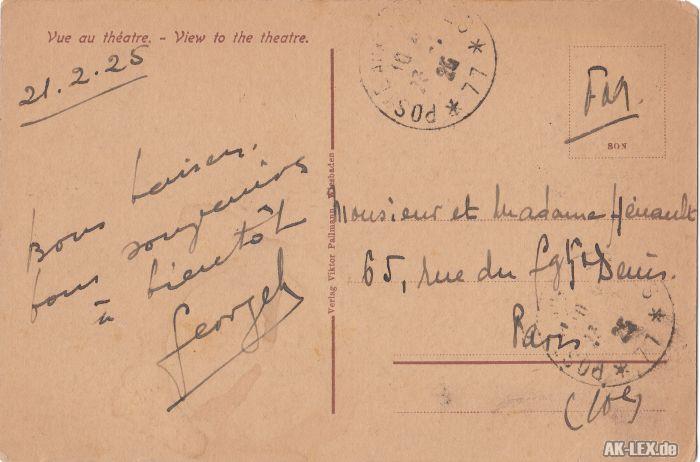 Vue au théatre. - View to the theatre.
21.2.25
Bons baisers.
bons souvenirs
à bientôt
Georges
Verlag Viktor Pallmann, Wiesbaden
POS 77
F.M.
BON
Monsieur et Madame Hénault
65, rue du Fg St Denis.
Paris
(10e)
POS 77
AK-LEX.de